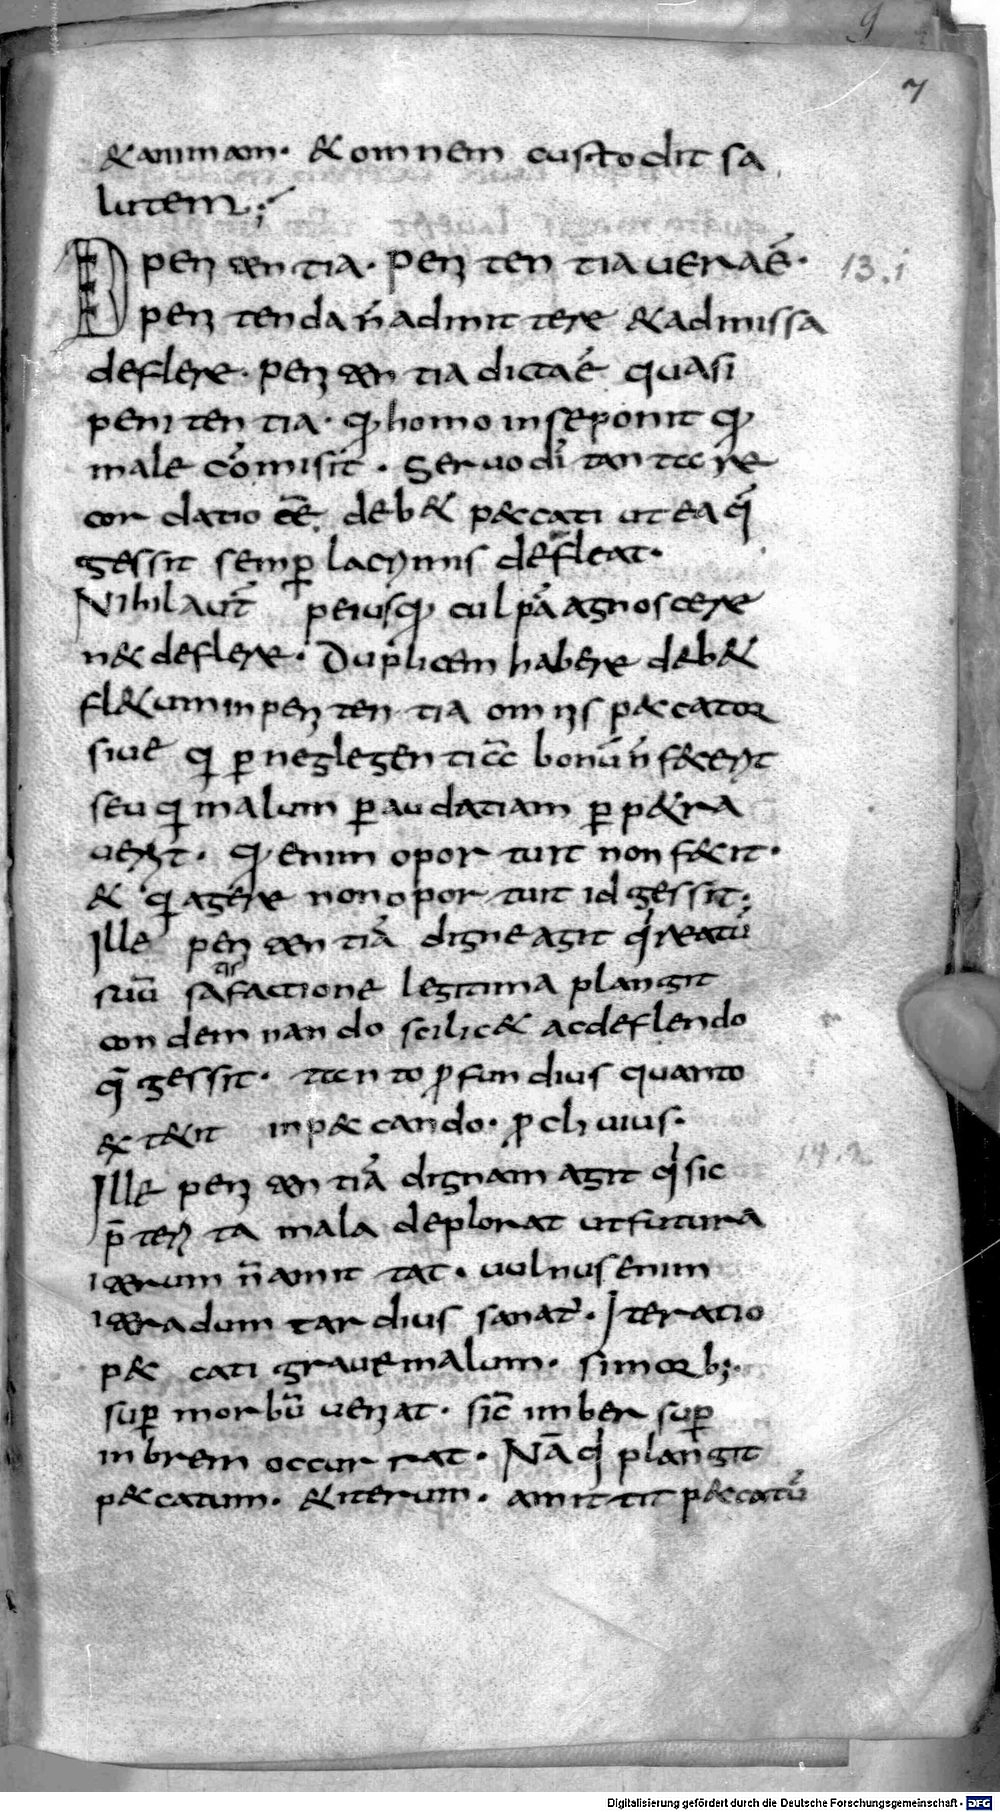 9
7
& animam. & omnem custodit sa
lutem;
D penitentia. Penitentia uera ē. 13.i
penitenda n̄ admittere & admissa
deflere. Penitentia dicta ē quasi
penitentia. qd homo in se ponit qd
male cōmisit. Seruo dī tanta re
cordatio ēē deb& peccati ut ea q̄
gessit semp̱ lacrimis defleat.
Nihil aut̄ peius qd culpā agnoscere
n& deflere. Duplicem habere deb&
fl&um in penitentia omnis peccator
siue q p̱ neglegentiā bonū n̄ fecerit
seu q malum p̱ audatiam p̱p&ra
uerit. qd enim oportuit non fecit.
& q agere non oportuit id gessit;
Ille penitentiā digne agit q reatū
suū satisfactione legitima plangit
condemnando scilic& ac deflendo
q̄ gessit. tanto p̱fundius quanto
extetit in peccando. p̱cliuius.
Ille penitentiā dignam agit q sic 14.2
p̄terita mala deplorat ut futura
iterum n̄ amittat. uulnus enim
iteradum tardius sanat̄. Iteratio
peccati graue malum. si morb;.
sup̱ morbū ueniat. sic̄ imber sup̱
imbrem occurrat. Nā q plangit
peccatum. & iterum. amittit peccatū
Digitalisierung gefördert durch die Deutsche Forschungsgemeinschaft - DFG